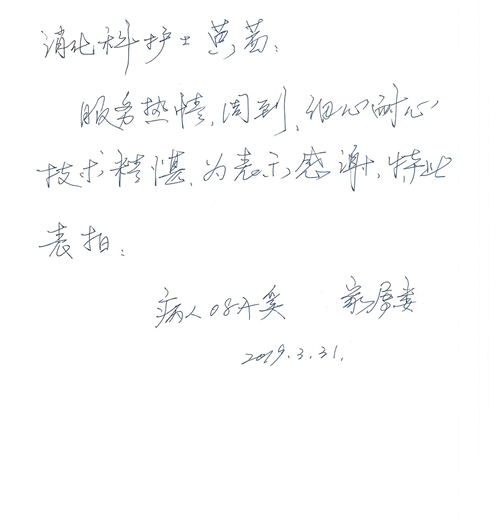 消化科护士黄莉:
服务热情,周到,细心耐心
技术精湛,为表示感谢,特此
表扬:
病人 家属娄
2019.3.31.